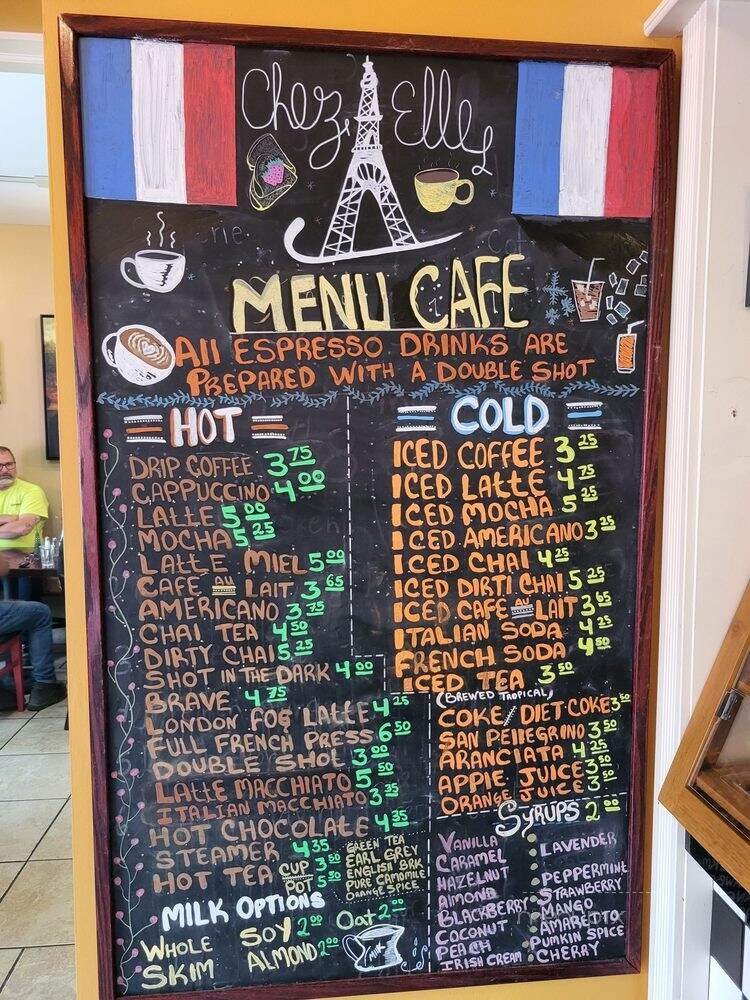 Chez Elles
MENU CAFE
All ESPRESSO DRINKS ARE
PREPARED WITH A DOUBLE SHOT
HOT
DRIP COFFEE 3 75
CAPPUCCINO 4 00
LATTE 5 00
MOCHA 5 25
LATTE MIEL 5 00
CAFE AU LAIT 3 65
AMERICANO 3 75
CHAI TEA 4 50
DIRTY CHAI 5 25
SHOT IN THE DARK 4 00
BRAVE 4 75
LONDON FOG LATTE 4 25
FULL FRENCH PRESS 6 50
DOUBLE SHOT 3 00
LATTE MACCHIATO 5 50
ITALIAN MACCHIATO 3 35
HOT CHOCOLATE 4 35
STEAMER 4 35
HOT TEA CUP 3 50
POT 5 50
GREEN TEA
EARL GREY
ENGLISH BRK
PURE CAMOMILE
ORANGE SPICE
MILK OPTIONS
WHOLE SOY 2 00 Oat 2 00
SKIM ALMOND 2 00
MILK
COLD
ICED COFFEE 3 25
ICED LATTE 4 75
ICED MOCHA 5 25
ICED AMERICANO 3 25
ICED CHAI 4 25
ICED DIRTI CHAI 5 25
ICED CAFE AU LAIT 3 65
ITALIAN SODA 4 50
FRENCH SODA 4 50
ICED TEA 3 50
(BREWED TROPICAL)
COKE/ DIET COKE 3 50
SAN PELLEGRINO 3 50
ARANCIATA 4 25
APPlE JUICE 3 50
ORANGE JUICE 3 50
SYRUPS 2 00
VANILLA
CARAMEL
HAZELNUT
ALMOND
BLACKBERRY
COCONUT
PEACH
IRISH CREAM
LAVENDER
PEPPERMINT
STRAWBERRY
MANGO
AMARETTO
PUMKIN SPICE
CHERRY